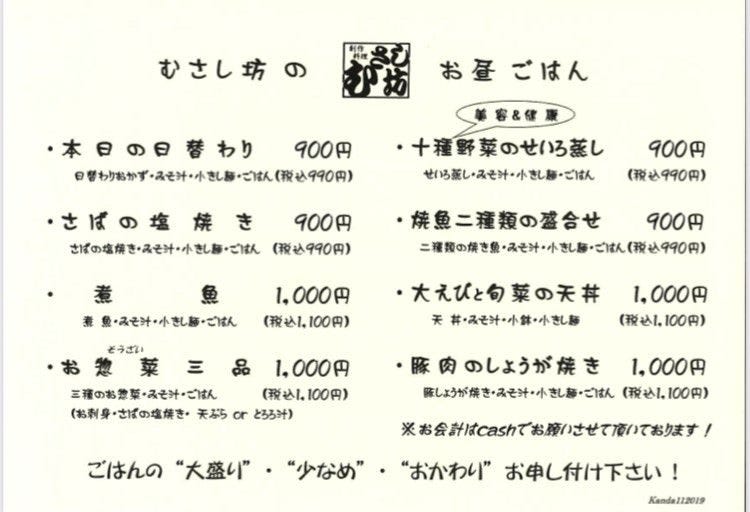 むさし坊の
創作料理 むさし坊
お昼ごはん
・本日の日替わり 900円
日替わりおかず・みそ汁・小きし麺・ごはん(税込990円)
・さばの塩焼き 900円
さばの塩焼き・みそ汁・小きし麺・ごはん (税込990円)
・煮魚 1,000円
煮魚・みそ汁・小きし麺・ごはん (税込1,100円)
そうざい
・お惣菜三品 1,000円
三種のお惣菜・みそ汁・ごはん (税込1,100円)
(お刺身・さばの塩焼き・天ぷら or とろろ汁)
美容&健康
・十種野菜のせいろ蒸し 900円
せいろ蒸し・みそ汁・小きし麺・ごはん (税込990円)
・焼魚二種類の盛合せ 900円
二種類の焼き魚・みそ汁・小きし麺・ごはん(税込990円)
・大えびと旬菜の天丼 1,000円
天丼・みそ汁・小鉢・小きし麺 (税込1,100円)
・豚肉のしょうが焼き 1,000円
豚しょうが焼き・みそ汁・小きし麺・ごはん (税込1,100円)
※お会計はcashでお願いさせて頂いております！
ごはんの“大盛り”・“少なめ”・“おかわり” お申し付け下さい！
Kanda112019